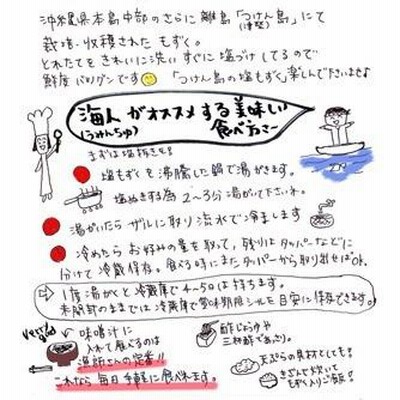 沖縄県本島中部のさらに離島「つけん島」にて
(津堅)
栽培・収穫された もずく。
とれたてを きれいに洗い すぐに 塩づけ してるので
鮮度バツグンです「つけん島の塩もずく」楽しんで下さいませ♪
海人がオススメする美味しい
(うみんちゅ)
食べ方さー
まずは塩抜きを!
塩もずくを沸騰した鍋で湯がきます。
塩ぬきする為 2〜3分湯がいて下さいね。
湯がいたら ザルに取り流水で冷まします
冷めたら お好みの量を取って、残りは タッパーなどに
分けて冷蔵保存。食べる時にまたタッパーから取り出せばok.
1度湯がくと冷蔵庫で4〜5日は持ちます。
未開封のままでは 冷蔵庫で賞味期限シールを目安に保存できます。
Very good
味噌汁に
入れて食べるのは
漁師さんの定番!!
これなら毎日手軽に食べれます。
酢じょうゆや
三杯酢であっさり。
天ぷらの具材としても!
きざんで炊いて
もずく入りご飯!